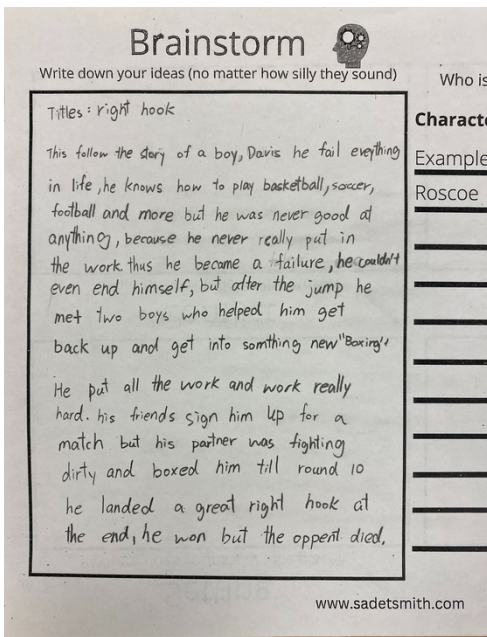 Brainstorm
Write down your ideas (no matter how silly they sound)
Titles: right hook
This follow the story of a boy, Davis he fail eveything
in life, he knows how to play basketball, soccer,
football and more but he was never good at
anything, because he never really put in
the work. thus he became a failure, he couldn't
even end himself, but after the jump he
met two boys who helped him get
back up and get into somthing new "Boxing"
He put all the work and work really
hard. his friends sign him up for a
match but his partner was fighting
dirty and boxed him till round 10
he landed a great right hook at
the end, he won but the oppent died.
www.sadetsmith.com
Who is
Characte
Example
Roscoe